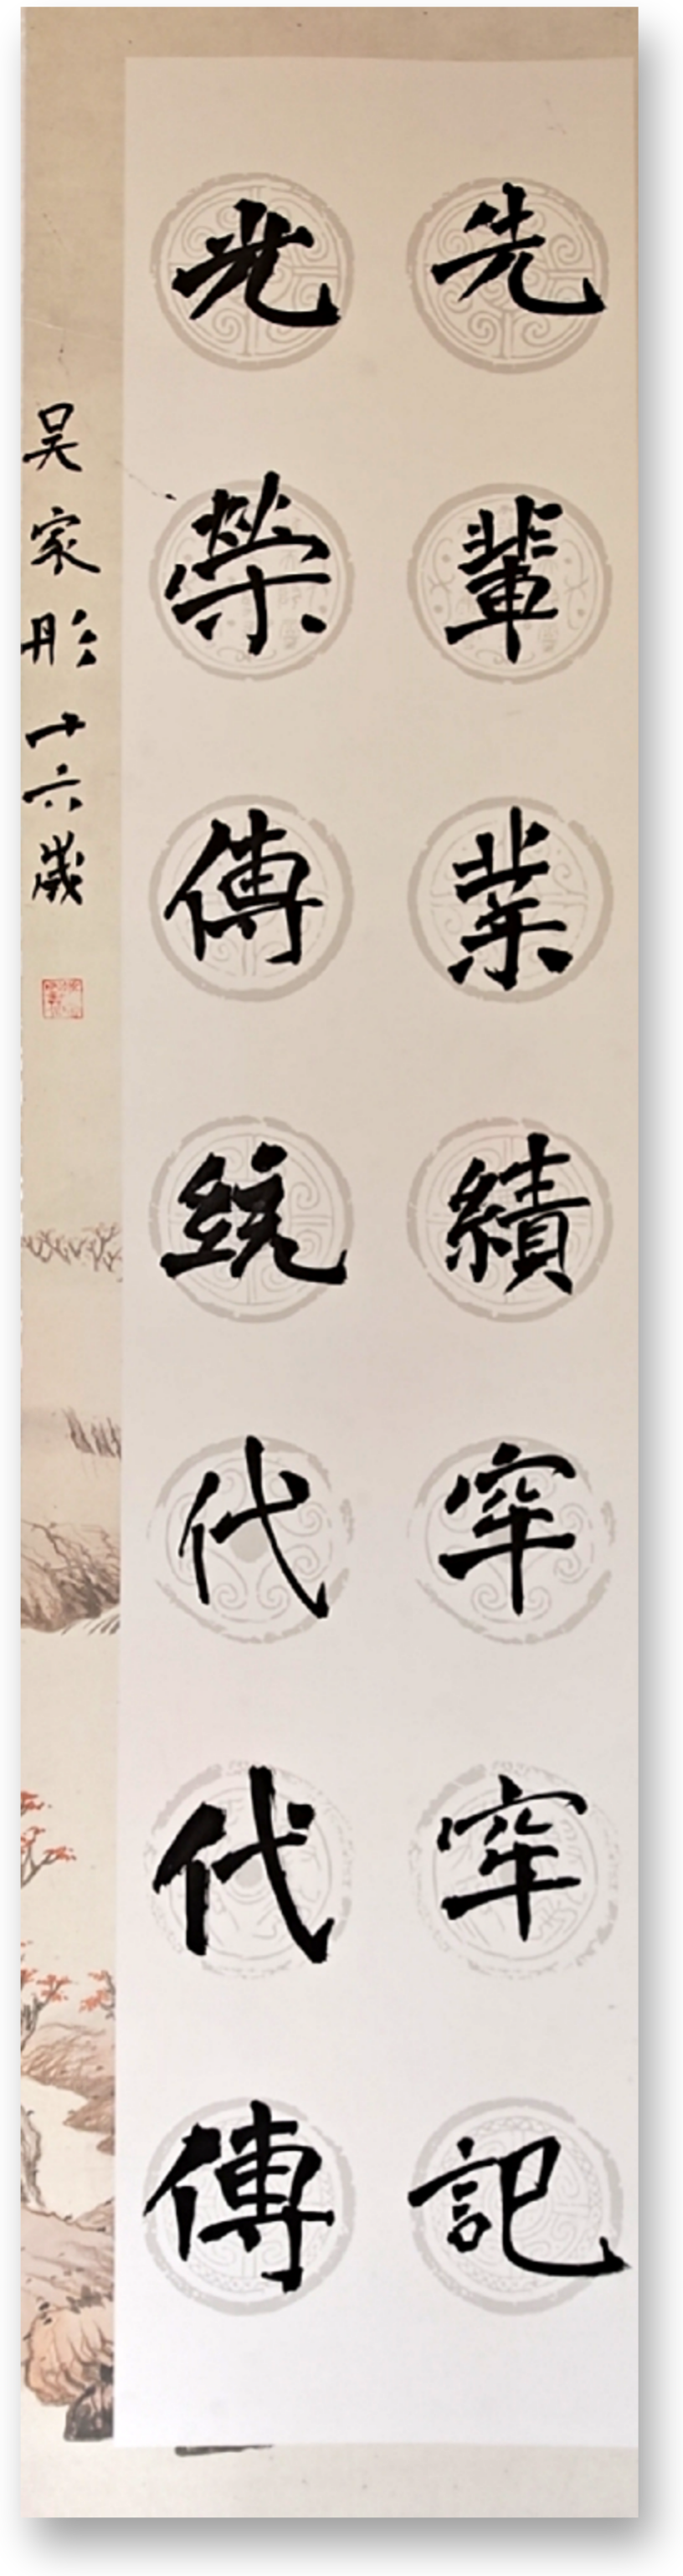 先輩業績牢牢記
光榮傳統代代傳
吴家彤十六歲